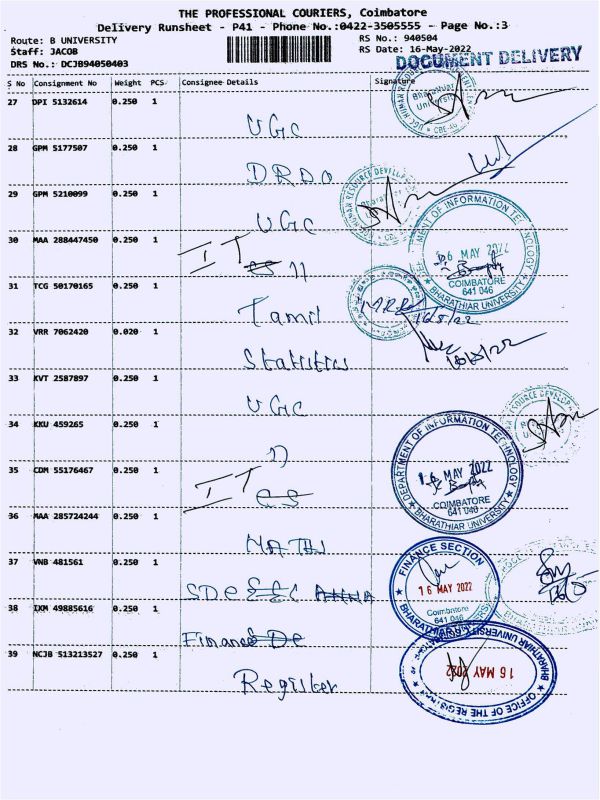 THE PROFESSIONAL COURIERS, Coimbatore
Delivery Runsheet - P41 - Phone No.:0422-3505555 - Page No.:3
Route: B UNIVERSITY
RS No.: 940504
Staff: JACOB
RS Date: 16-May-2022
DRS No.: DCJB94050403
DOCUMENT DELIVERY
S No Consignment No Weight PCS Consignee Details Signature
27 DPI 5132614 0.250 1
UGC
28 GPM 5177507 0.250 1
DRDO
29 GPM 5210099 0.250 1
UGC
30 MAA 288447450 0.250 1
IT
31 TCG 50170165 0.250 1
Tamil
16/5/22
32 VRR 7062420 0.020 1
Statistics
33 KVT 2587897 0.250 1
UGC
34 KKU 459265 0.250 1
35 CDM 55176467 0.250 1
IT
36 MAA 285724244 0.250 1
37 VNB 481561 0.250 1
SDC
38 IXM 49885616 0.250 1
Finance
39 NCJB 513213527 0.250 1
Register
16 MAY 2022
COIMBATORE
641 046
BHARATHIAR UNIVERSITY
DEPARTMENT OF INFORMATION TECHNOLOGY
16 MAY 2022
COIMBATORE
641 046
BHARATHIAR UNIVERSITY
FINANCE SECTION
16 MAY 2022
Coimbatore
641 046
BHARATHIAR UNIVERSITY
16 MAY 2022